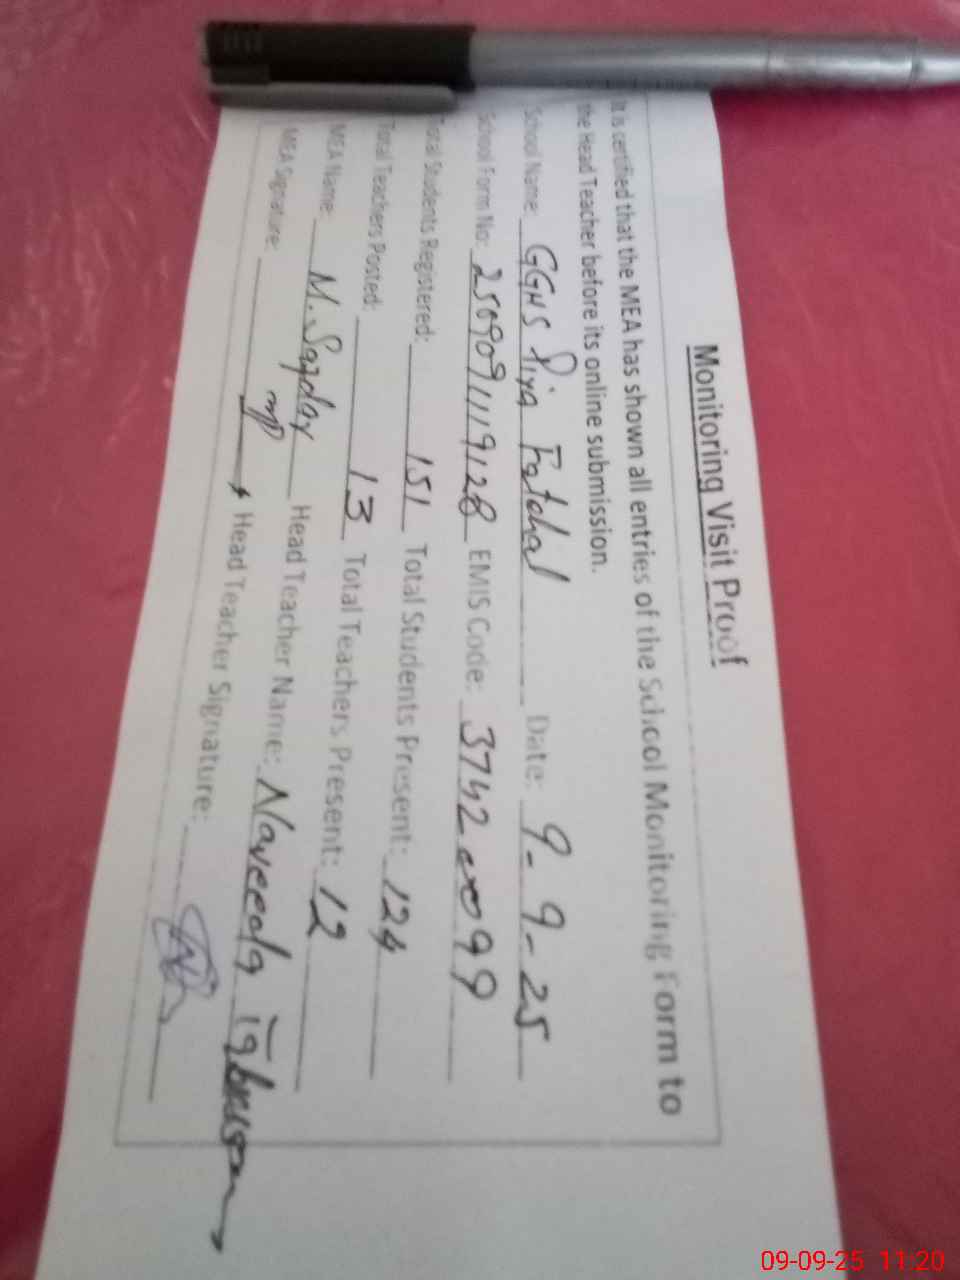 Monitoring Visit Proof
It is certified that the MEA has shown all entries of the School Monitoring Form to
the Head Teacher before its online submission.
School Name: GGHS Piya Fatohal Date: 9-9-25
School Form No: 2509091119128 EMIS Code: 37420099
Total Students Registered: 151 Total Students Present: 124
Total Teachers Posted: 13 Total Teachers Present: 12
MEA Name: M. Head Teacher Name: Naveeda
MEA Signature: Head Teacher Signature:
09-09-25 11:20